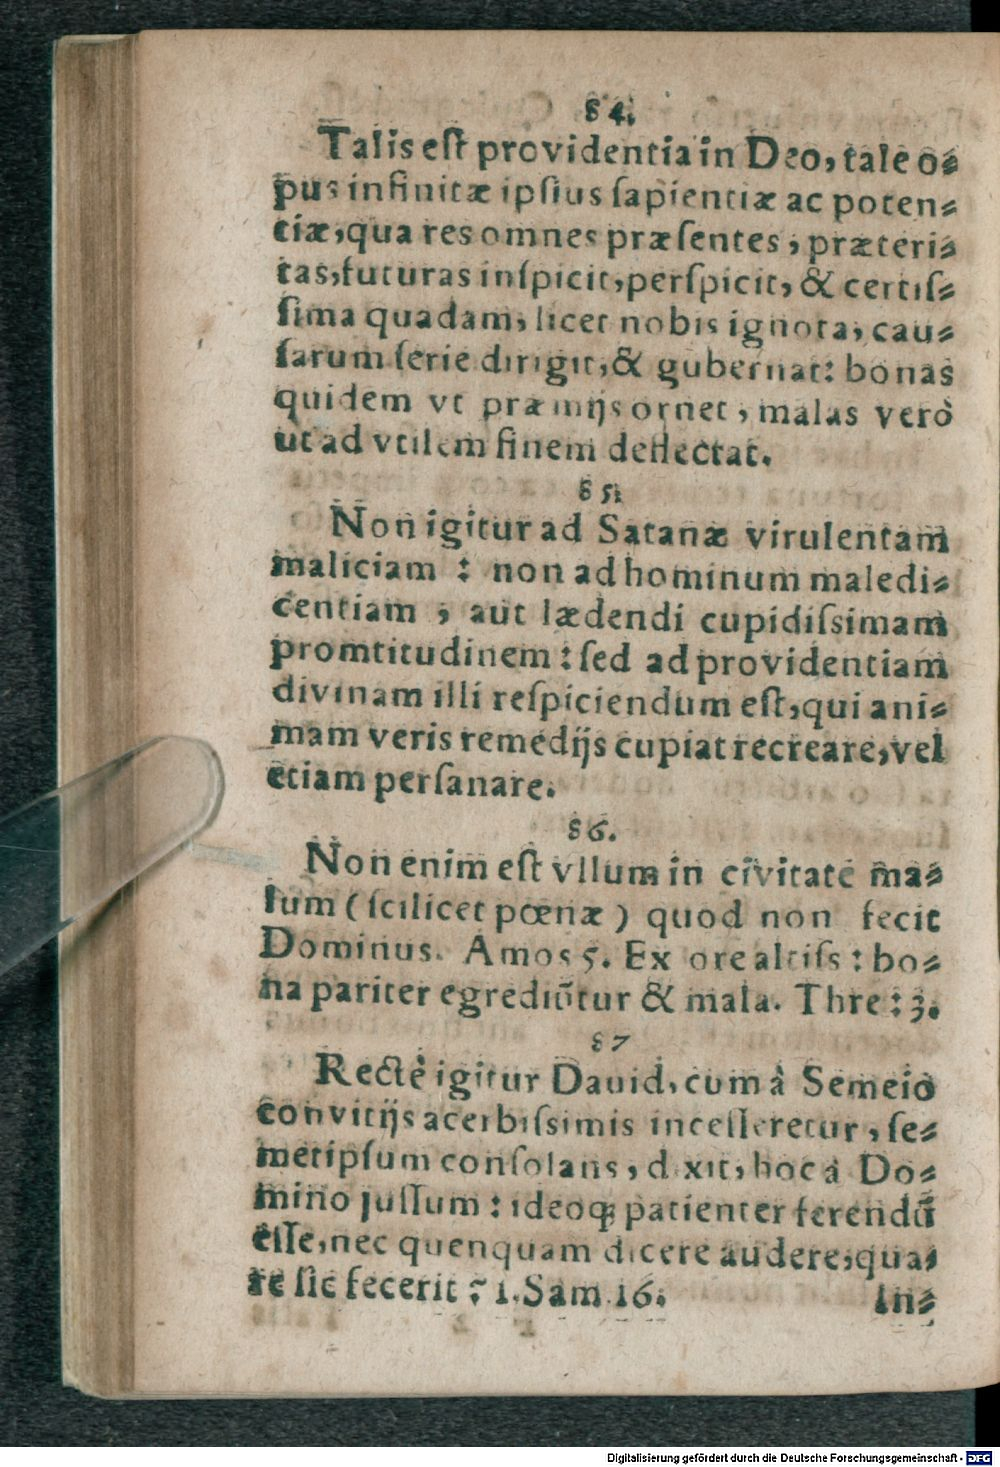 84.
Talis eſt providentia in Deo, tale o-
pus infinitæ ipſius ſapientiæ ac poten-
tiæ, qua res omnes præſentes, præteri-
tas, futuras inſpicit, perſpicit, & certiſ-
ſima quadam, licet nobis ignota, cau-
ſarum ſerie dirigit, & gubernat: bonas
quidem vt præmijs ornet, malas verò
ut ad vtilem finem deflectat.
85.
Non igitur ad Satanæ virulentam
maliciam : non ad hominum maledi-
centiam , aut lædendi cupidiſsimam
promtitudinem : ſed ad providentiam
divinam illi reſpiciendum eſt, qui ani-
mam veris remedijs cupiat recreare, vel
etiam perſanare.
86.
Non enim eſt vllum in civitate ma-
lum ( ſcilicet pœnæ ) quod non fecit
Dominus. Amos 5. Ex ore altiſs : bo-
na pariter egrediũtur & mala. Thre : 3.
87
Rectè igitur Dauid, cum à Semeio
convitijs acerbiſsimis inceſſeretur, ſe-
metipſum conſolans, dixit, hoc à Do-
mino juſſum : ideoq́; patienter ferendũ
eſſe, nec quenquam dicere audere, qua-
re ſic fecerit ? 1. Sam 16.
In-
Digitalisierung gefördert durch die Deutsche Forschungsgemeinschaft - DFG